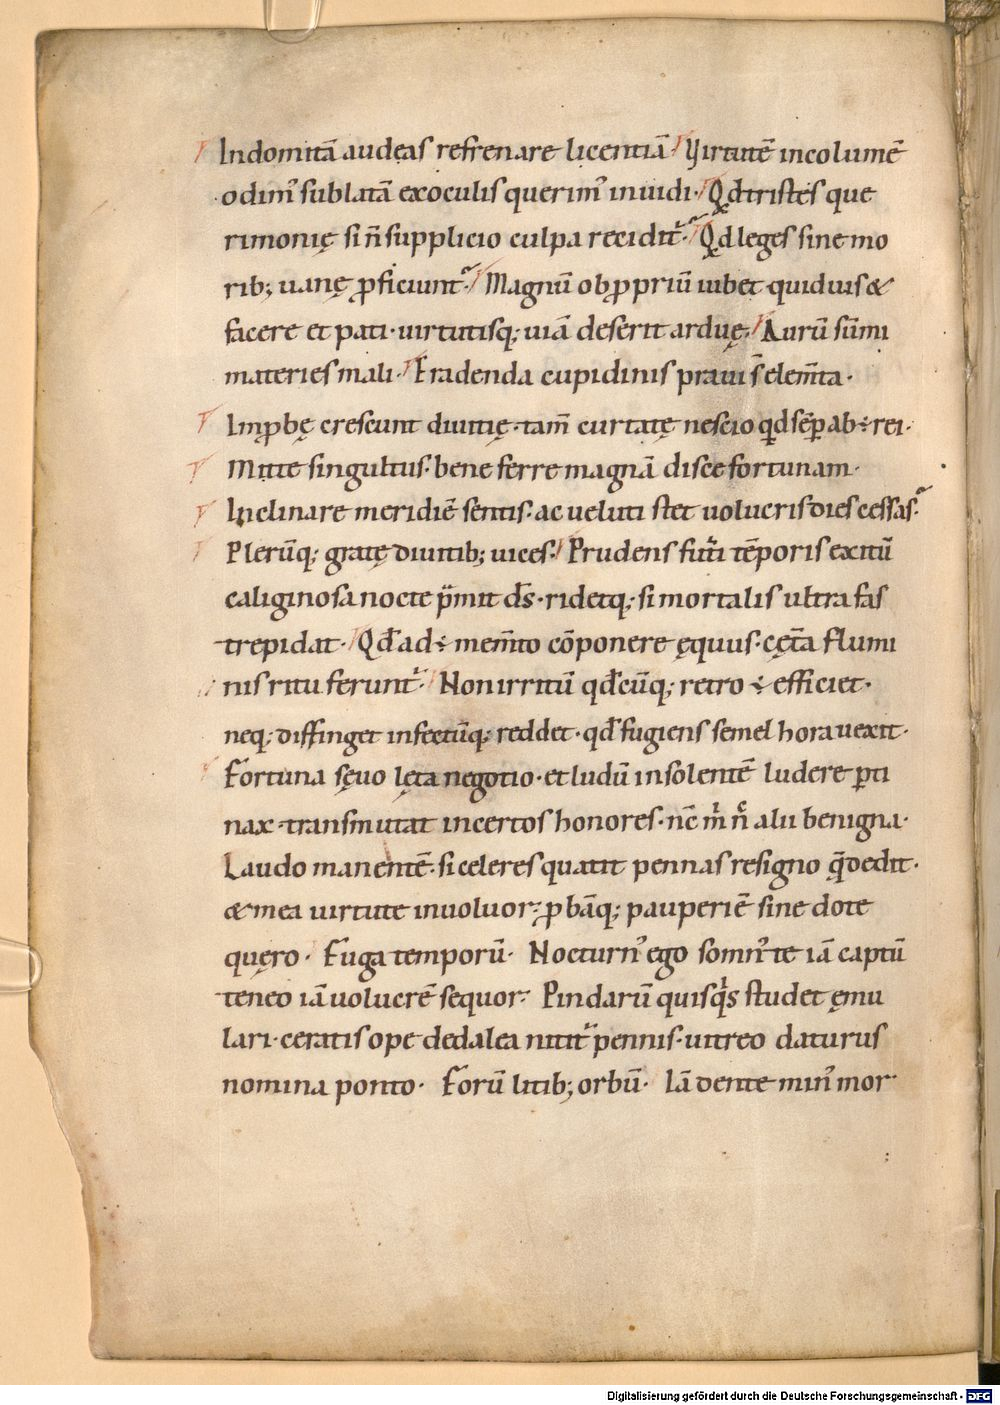 Indomitā audeas refrenare licentiā · Virtutē incolumē
odim᾽ sublatā ex oculis querim᾽ inuidi · Qđ tristes que
rimonię si n̄ supplicio culpa reciditᷣ · Qđ leges sine mo
rib; uanę ꝓficiunt · Magnū ob ꝓpriū iubet quiduis &
facere et pati · uirtutisq; uiā deserit arduę · Aurū sūmi
materies mali · Eradenda cupidinis praui s̄ elem̄ta ·
Imꝓbę crescunt diuitię · tam̄ curtatę nescio qđ sēꝑ ab ÷ rei ·
Mitte singultus · bene ferre magnā disce fortunam ·
Inclinare meridiē sentis · ac ueluti stet uolucris dies cessas ·
Plerūq; gratę diuitib; uices · Prudens futᷣi tēporis exitū
caliginosa nocte p̄mit d̄s · ridetq; si mortalis ultra fas
trepidat · Qđ ad ÷ mem̄to cōponere ęquus · cęt̄a flumi
nis ritu feruntᷣ · Non irritū qđcūq; retro ÷ efficiet ·
neq; diffinget infectūq; reddet · qđ fugiens semel hora uexit ·
Fortuna sęuo lęta negotio · et ludū insolentē ludere ꝑti
nax · transmutat incertos honores · nc̄ m̊ n̊ alii benigna ·
Laudo manentē · si celeres quatit pennas resigno q̄ dedit ·
& mea uirtute inuoluor · ꝓbāq; pauperiē sine dote
quęro · Fuga temporū · Nocturn᾽ ego somn᾽ te iā captū
teneo iā uolucrē sequor · Pindarū quisq̊s studet ęmu
lari · ceratis ope dedalea nititᷣ pennis · uitreo daturus
nomina ponto · Forū litib; orbū · Iā dente min᾽ mor
Digitalisierung gefördert durch die Deutsche Forschungsgemeinschaft - DFG